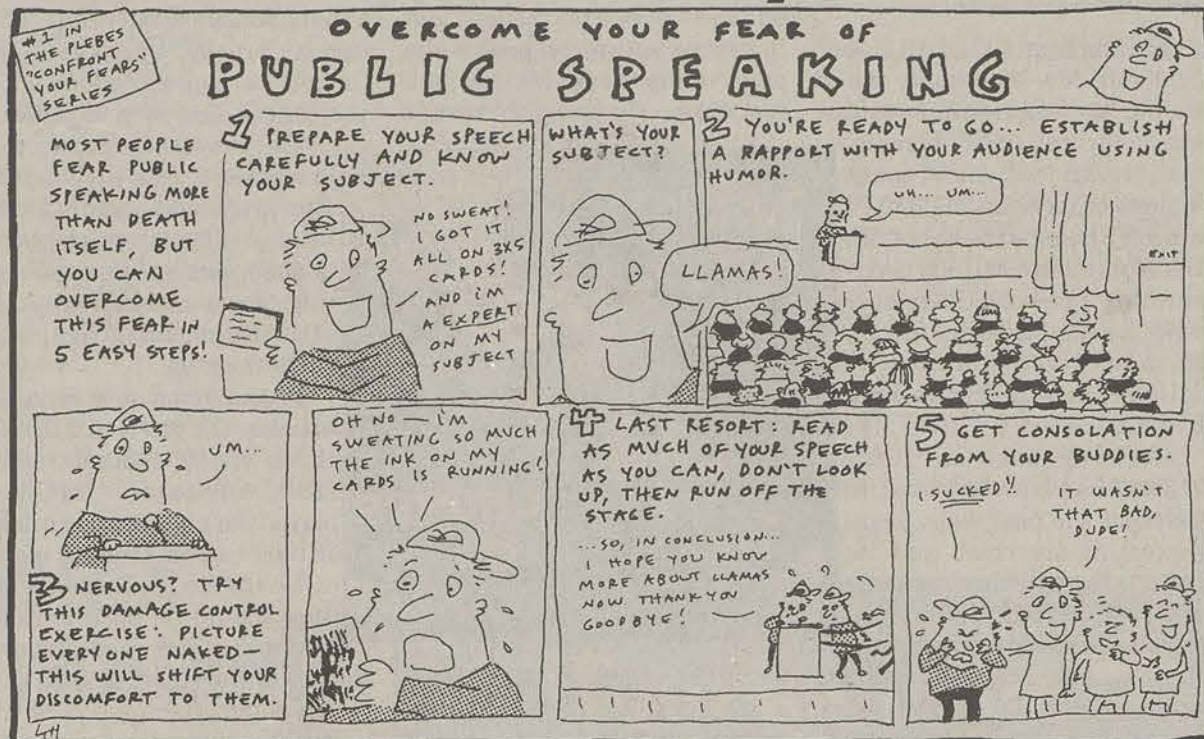 #1 IN
THE PLEBES
"CONFRONT
YOUR FEARS"
SERIES
OVERCOME YOUR FEAR OF
PUBLIC SPEAKING
MOST PEOPLE
FEAR PUBLIC
SPEAKING MORE
THAN DEATH
ITSELF, BUT
YOU CAN
OVERCOME
THIS FEAR IN
5 EASY STEPS!
1 PREPARE YOUR SPEECH
CAREFULLY AND KNOW
YOUR SUBJECT.
NO SWEAT!
I GOT IT
ALL ON 3X5
CARDS!
AND I'M
A EXPERT
ON MY
SUBJECT
WHAT'S YOUR
SUBJECT?
LLAMAS!
2 YOU'RE READY TO GO... ESTABLISH
A RAPPORT WITH YOUR AUDIENCE USING
HUMOR.
UH... UM...
EXIT
UM...
3 NERVOUS? TRY
THIS DAMAGE CONTROL
EXERCISE: PICTURE
EVERYONE NAKED—
THIS WILL SHIFT YOUR
DISCOMFORT TO THEM.
OH NO — I'M
SWEATING SO MUCH
THE INK ON MY
CARDS IS RUNNING!
4 LAST RESORT: READ
AS MUCH OF YOUR SPEECH
AS YOU CAN, DON'T LOOK
UP, THEN RUN OFF THE
STAGE.
...SO, IN CONCLUSION...
I HOPE YOU KNOW
MORE ABOUT LLAMAS
NOW THANK YOU
GOODBYE!
5 GET CONSOLATION
FROM YOUR BUDDIES.
I SUCKED!!
IT WASN'T
THAT BAD,
DUDE!
LH